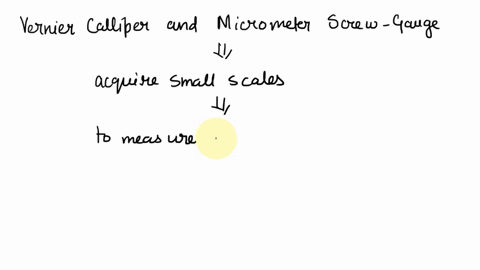 Vernier Calliper and Micrometer Screw-Gauge
⇓
acquire small scales
⇓
to measure